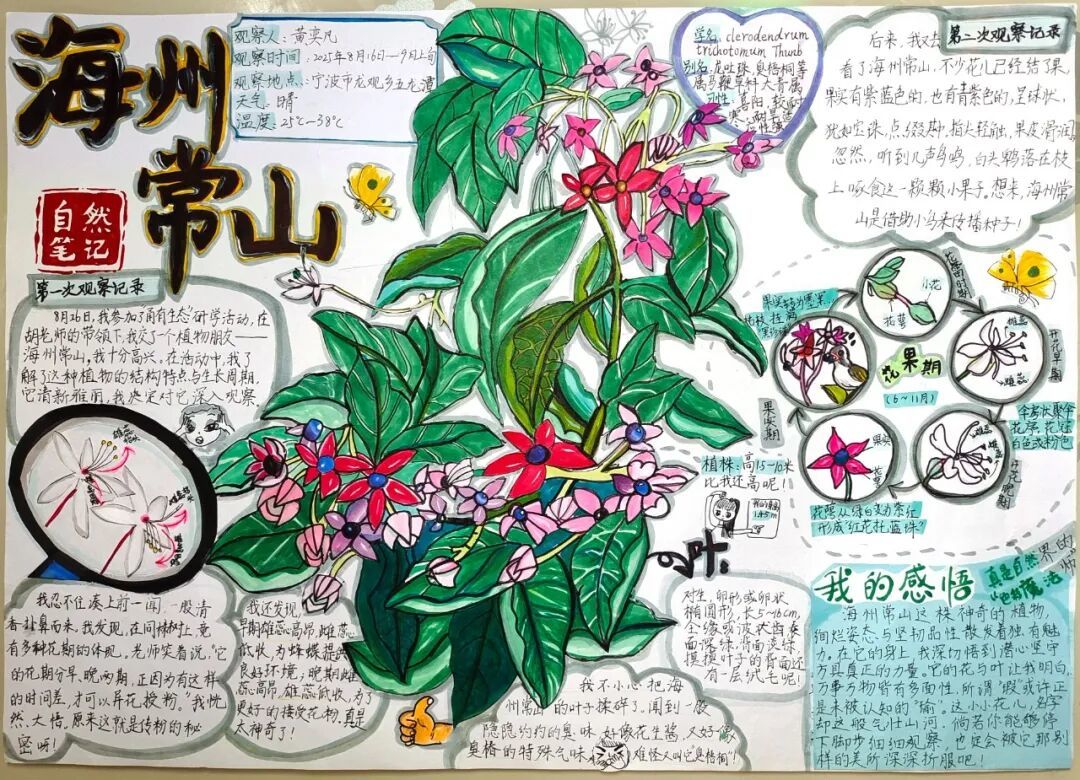 海州
常山
自然
笔记
观察人：黄奕凡
观察时间：2025年8月16日—9月上旬
观察地点：宁波市龙观乡五龙潭
天气：日晴
温度：25℃—38℃
学名：clerodendrum
trichotomum Thunb
别名：龙吐珠、臭梧桐等
属马鞭草科大青属
第一次观察记录
8月26日，我参加了"甬有生态"研学活动，在
胡老师的带领下，我交了一个植物朋友——
海州常山。我十分高兴，在活动中，我了
解了这种植物的结构特点与生长周期，
它清新雅丽，我决定对它深入观察
雄蕊
雌蕊
我忍不住凑上前一闻，一股清
香扑鼻而来，我发现，在同株树上，竟
有多种花期的体现。老师笑着说："它
的花期分早、晚两期，正因为有这样
的时间差，才可以异花授粉。"我恍
然大悟，原来这就是传粉的秘
密呀！
我还发现，
早期雄蕊高昂，雌蕊
低收，为蜂蝶提供
良好环境；晚期雌
蕊高昂，雄蕊低收，为了
更好的接受花粉，真是
太神奇了！
第二次观察记录
后来，我又去
看了海州常山，不少花儿已经结了果，
果实有紫蓝色的，也有青紫色的，呈球状，
犹如宝珠，点缀其中，指尖轻触，果皮滑润，
忽然，听到几声鸟鸣，白头鹎落在枝
上，啄食这一颗颗小果子。想来，海州常
山是借助小鸟来传播种子！
花果期
（6~11月）
小花
花萼
开花早期
雄蕊
雌蕊
伞房状聚伞
花序，花冠
白色或粉色
开花晚期
果实
花萼
花萼从绿白变为紫红
形成红花托蓝珠
果实期
植株：高1.5—10米
比我还高呢！
叶：
对生，卵形或卵状
椭圆形，长5~16cm，
全缘或波状齿表
面深绿，背面淡绿，
摸摸叶子的背面还
有一层绒毛呢！
我不小心把海
州常山的叶子揉碎了，闻到一股
隐隐约约的臭味，好像花生酱，又好像
臭椿的特殊气味，难怪又叫它"臭梧桐"！
我的感悟
真是自然界的
魔法师
海州常山这株神奇的植物，
绚烂姿态与坚韧品性散发着独有魅
力。在它的身上，我深切悟到潜心坚守
方具真正的力量。它的花与叶让我明白，
万事万物皆有多面性，所谓"瑕"或许正
是未被认知的"瑜"。这小小花儿，名字
却这般气壮山河，倘若你能够停
下脚步细细观察，也定会被它那别
样的美所深深折服吧！